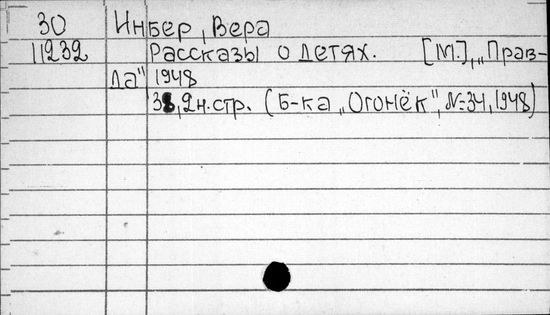 30 Инбер, Вера
11232 Рассказы о детях. [М.], „Прав-
да" 1948
38, 2 н. стр. (Б-ка „Огонёк", №34, 1948)